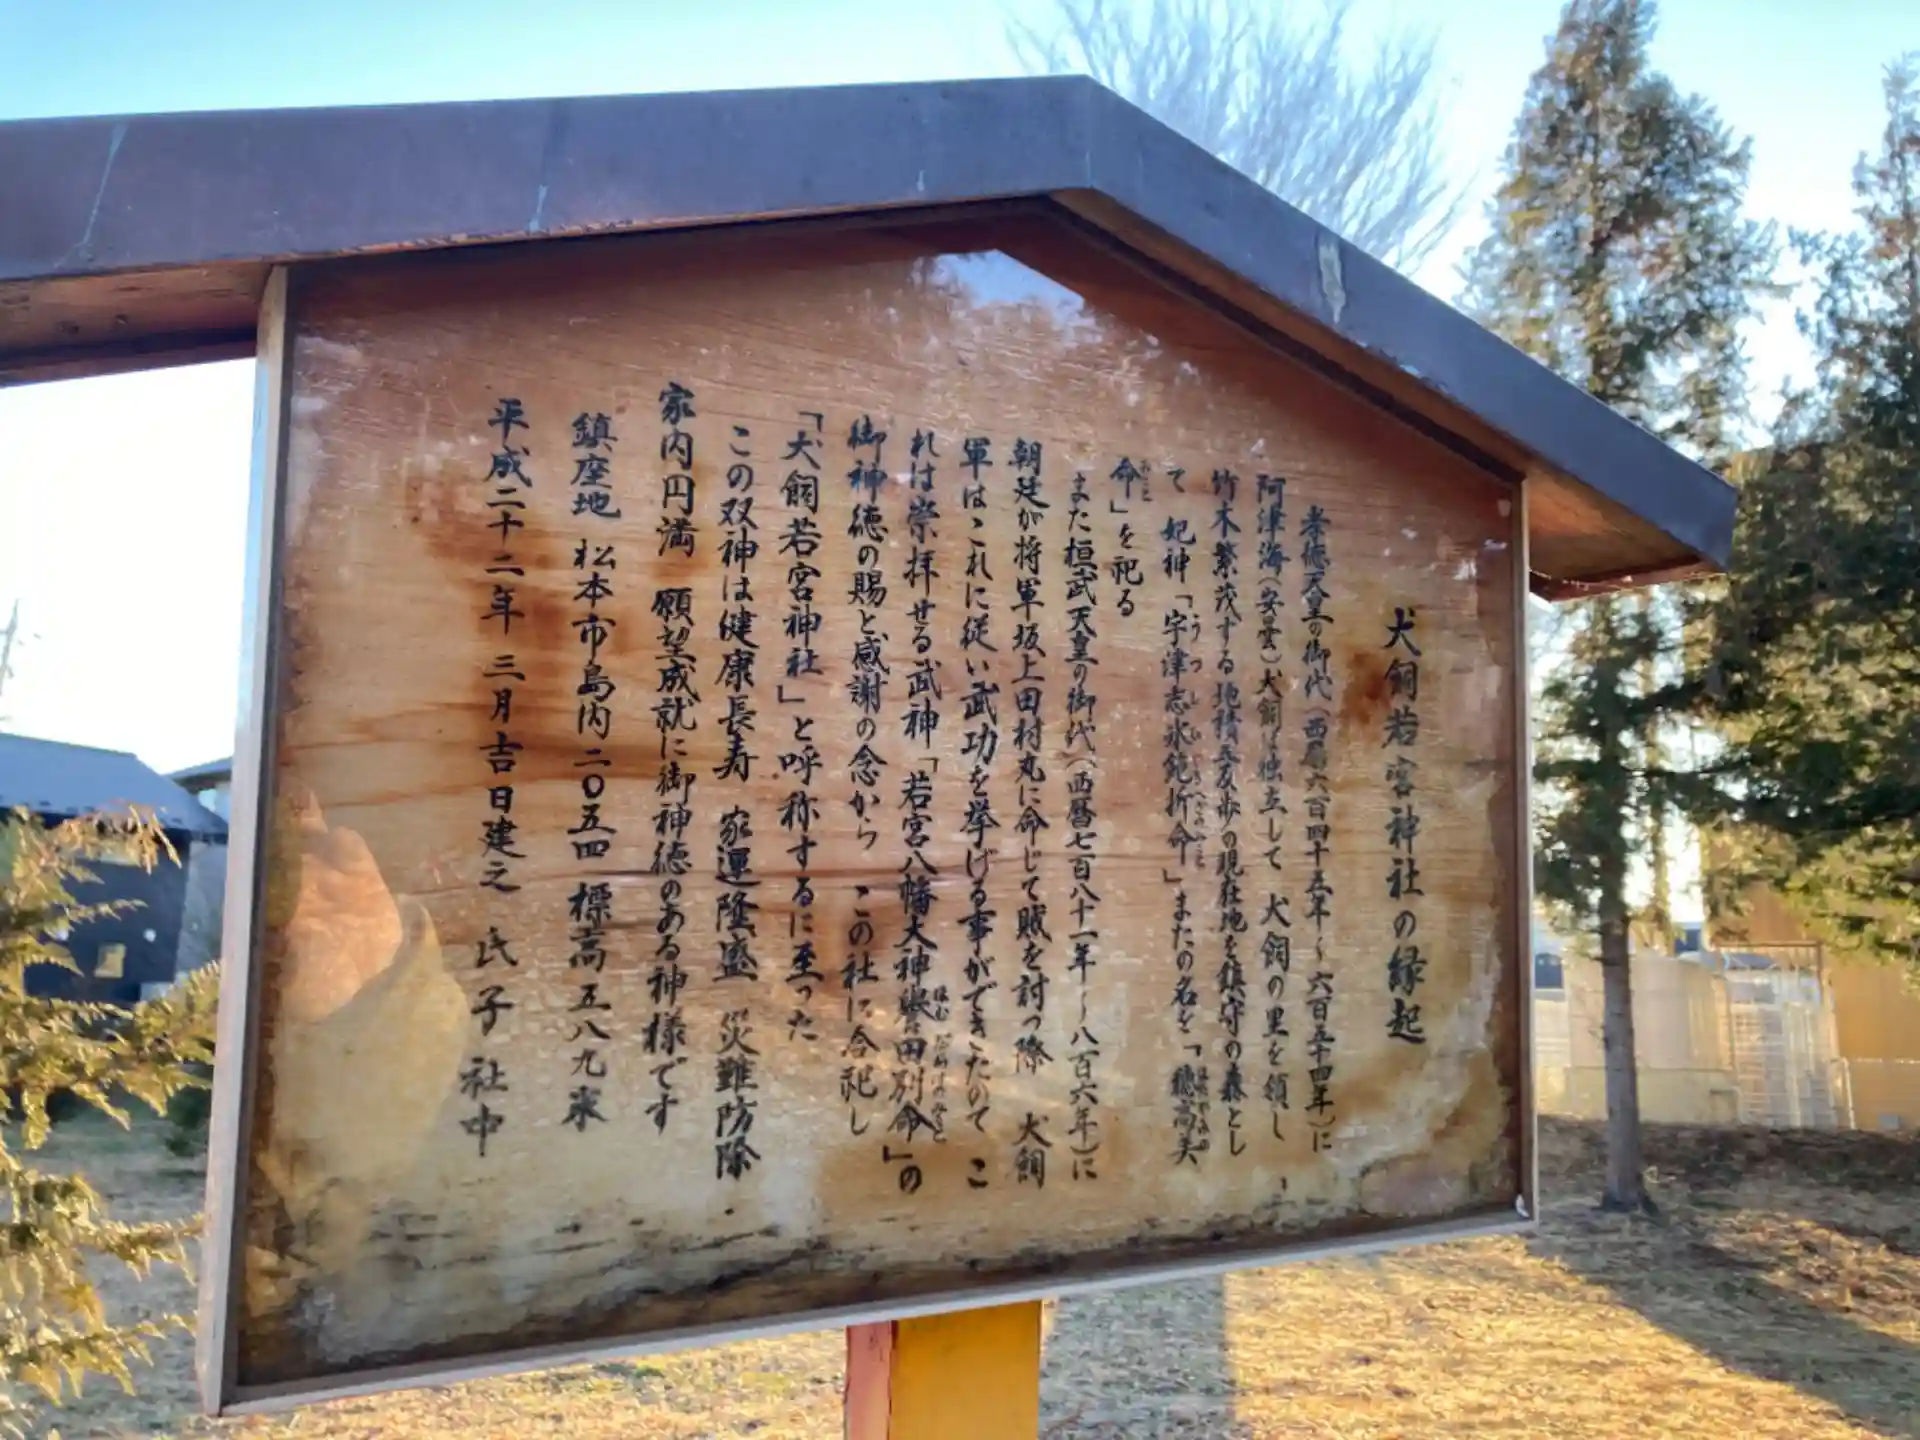 犬飼若宮神社の縁起
孝徳天皇の御代(西暦六百四十五年～六百五十四年)に
阿津海(安曇)犬飼は独立して 犬飼の里を領し
竹木繁茂する地積五反歩の現在地を鎮守の森とし
て 妃神「宇津志氷鉋折命」またの名を「穂高美
命」を祀る
また桓武天皇の御代(西暦七百八十一年～八百六年)に
朝廷が将軍坂上田村丸に命じて賊を討つ際 犬飼
軍はこれに従い武功を挙げる事ができたのて こ
れは崇拝せる武神「若宮八幡大神誉田別命」の
御神徳の賜と感謝の念から この社に合祀し
「犬飼若宮神社」と呼称するに至った
この双神は健康長寿 家運隆盛 災難防除
家内円満 願望成就に御神徳のある神様です
鎮座地 松本市島内二〇五四 標高五八九米
平成二十二年 三月吉日建之 氏子社中